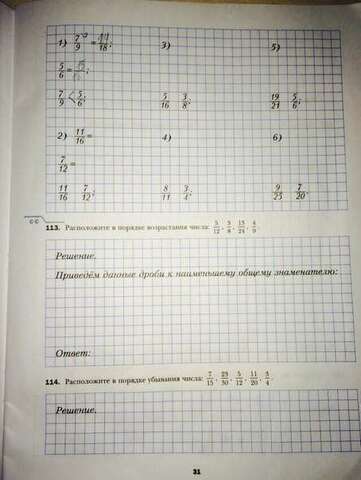 1) 7/9 = 14/18; 3) 5)
5/6 = 15/18;
7/9 < 5/6; 5/16 3/8; 19/21 5/6;
2) 11/16 = 4) 6)
7/12 =
11/16 7/12; 8/11 3/4; 9/25 7/20.
113. Расположите в порядке возрастания числа: 5/12, 5/8, 15/24, 4/9.
Решение.
Приведём данные дроби к наименьшему общему знаменателю:
Ответ:
114. Расположите в порядке убывания числа: 7/15, 23/30, 5/12, 11/20, 3/4.
Решение.
31